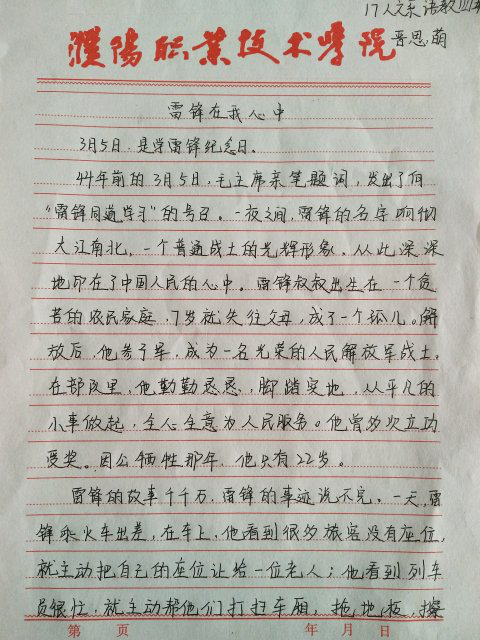 17人文系语教
濮阳职业技术学院
晋思萌
雷锋在我心中
3月5日,是学雷锋纪念日。
44年前的3月5日,毛主席亲笔题词,发出了向
“雷锋同志学习”的号召。一夜之间,雷锋的名字响彻
大江南北,一个普通战士的光辉形象,从此深深
地印在了中国人民的心中。雷锋叔叔出生在一个贫
苦的农民家庭,7岁就失往父母,成了一个孤儿。解
放后,他参了军,成为一名光荣的人民解放军战士。
在部队里,他勤勤恳恳,脚踏实地,从平凡的
小事做起,全心全意为人民服务。他曾多次立功
受奖。因公牺牲那年,他只有22岁。
雷锋的故事千千万,雷锋的事迹说不完。一天,雷
锋乘火车出差,在车上,他看到很多旅客没有座位,
就主动把自己的座位让给一位老人;他看到列车
员很忙,就主动帮他们打扫车厢,拖地板,擦
第 页 年 月 日